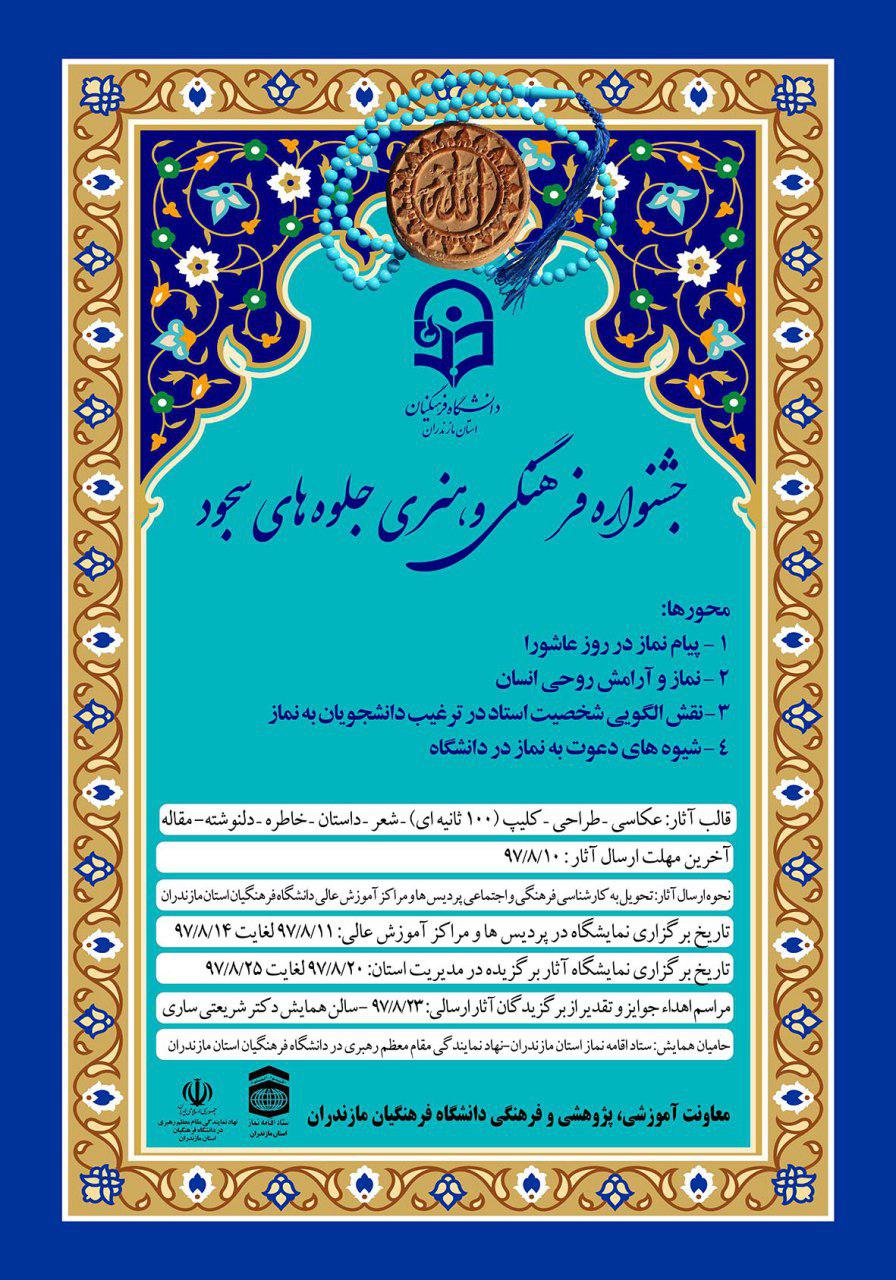 الله
دانشگاه فرهنگیان
استان مازندران
جشنواره فرهنگی و هنری جلوه های سجود
محورها:
۱ - پیام نماز در روز عاشورا
۲ - نماز و آرامش روحی انسان
۳- نقش الگویی شخصیت استاد در ترغیب دانشجویان به نماز
٤ - شیوه های دعوت به نماز در دانشگاه
قالب آثار: عکاسی - طراحی - کلیپ (۱۰۰ ثانیه ای) - شعر - داستان - خاطره - دلنوشته - مقاله
آخرین مهلت ارسال آثار : ۹۷/۸/۱۰
نحوه ارسال آثار: تحویل به کارشناسی فرهنگی و اجتماعی پردیس ها و مراکز آموزش عالی دانشگاه فرهنگیان استان مازندران
تاریخ برگزاری نمایشگاه در پردیس ها و مراکز آموزش عالی: ۹۷/۸/۱۱ لغایت ۹۷/۸/۱۴
تاریخ برگزاری نمایشگاه آثار برگزیده در مدیریت استان: ۹۷/۸/۲۰ لغایت ۹۷/۸/۲۵
مراسم اهداء جوایز و تقدیر از برگزیدگان آثار ارسالی: ۹۷/۸/۲۳ - سالن همایش دکتر شریعتی ساری
حامیان همایش: ستاد اقامه نماز استان مازندران - نهاد نمایندگی مقام معظم رهبری در دانشگاه فرهنگیان استان مازندران
معاونت آموزشی، پژوهشی و فرهنگی دانشگاه فرهنگیان مازندران
ستاد اقامه نماز
استان مازندران
جمهوری اسلامی ایران
نهاد نمایندگی مقام معظم رهبری
در دانشگاه فرهنگیان
استان مازندران